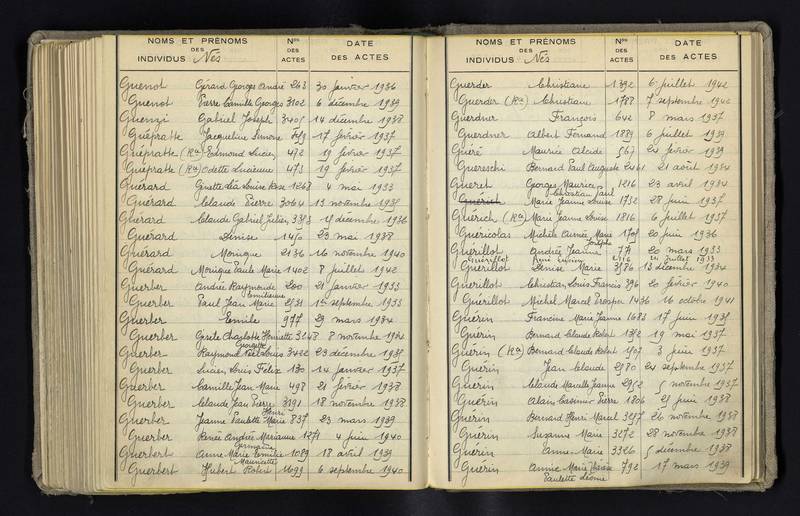 NOMS ET PRÉNOMS
DES
INDIVIDUS Nés
Nos
DES
ACTES
DATE
DES ACTES
Guenot Gérard Georges André 263 30 janvier 1936
Guenot Pierre Camille Georges 3102 6 décembre 1939
Guenzi Gabriel Joseph 14 décembre 1938
Guépratte Jacqueline Simone 17 février 1937
Guépratte (Ron) Edmond Lucien 472 19 février 1937
Guépratte (Ron) Odette Lucienne 473 19 février 1937
Guérard Ginette Léa Louise Rose 1268 4 mai 1933
Guérard Claude Pierre 3064 13 novembre 1935
Guérard Claude Gabriel Julien décembre 1936
Guérard Denise 23 mai 1938
Guérard Monique 2136 16 novembre 1940
Guérard Monique Paule Marie 1402 8 juillet 1942
Guerber Andrée Raymonde 200 21 janvier 1933
Emilienne
Guerber Paul Jean Marie 1er septembre 1933
Guerber Emile 977 29 mars 1934
Guerber Gisèle Charlotte Henriette 3248 8 novembre 1934
Georgette
Guerber Raymond Paul Louis 3422 23 décembre 1935
Guerber Lucien Louis Félix 130 14 janvier 1937
Guerber Camille Jean Marie 498 21 février 1938
Guerber Claude Jean Pierre 3191 18 novembre 1938
Henri
Guerber Jeanne Paulette Marie 837 23 mars 1939
Guerber Renée Andrée Marianne 1271 4 juin 1940
Germaine
Guerbert Anne Marie Emilie 1089 18 avril 1939
Mauricette
Guerbert Hubert Robert 1699 6 septembre 1940
NOMS ET PRÉNOMS
DES
INDIVIDUS Nés
Nos
DES
ACTES
DATE
DES ACTES
Guerder Christiane 1392 6 juillet 1942
Guerder (Ron) Christiane 1788 7 septembre 1942
Guerdner François 642 8 mars 1937
Guerdner Albert Fernand 1889 6 juillet 1939
Guéré Maurice Alcide 24 février 1939
Guereschi Bernard Paul Auguste 2461 21 août 1934
Gueret Georges Maurice 1216 23 avril 1934
Christian Paul
Guérich Marie Jeanne Louise 1732 28 juin 1937
Guérich (Ron) Marie Jeanne Louise 1816 6 juillet 1937
Guéricolas Michèle Aimée Marie 20 juin 1936
Josèphe
Guérillot Andrée Jeanne 20 mars 1933
Guérillot René Lucien 1933
Guérillot Denise Marie 3586 13 décembre 1934
Guerillot Christian Louis Francis 396 20 février 1940
Guérillot Michel Marcel Prosper 1436 16 octobre 1941
Guérin Francine Marie Jeanne 1682 17 juin 1935
Guérin Bernard Claude Robert 19 mai 1937
Guerin (Ron) Bernard Claude Robert 3 juin 1937
Guerin Jean Claude 2580 24 septembre 1937
Guerin Claude Marcelle Jeanne 5 novembre 1937
Guerin Alain Casimir Pierre 1806 25 juin 1938
Guérin Bernard Henri Marcel 3257 26 novembre 1938
Guerin Suzanne Marie 3272 28 novembre 1938
Guérin Anne Marie 3326 5 décembre 1938
Guerin Annie Marie 792 17 mars 1939
Paulette Léonie